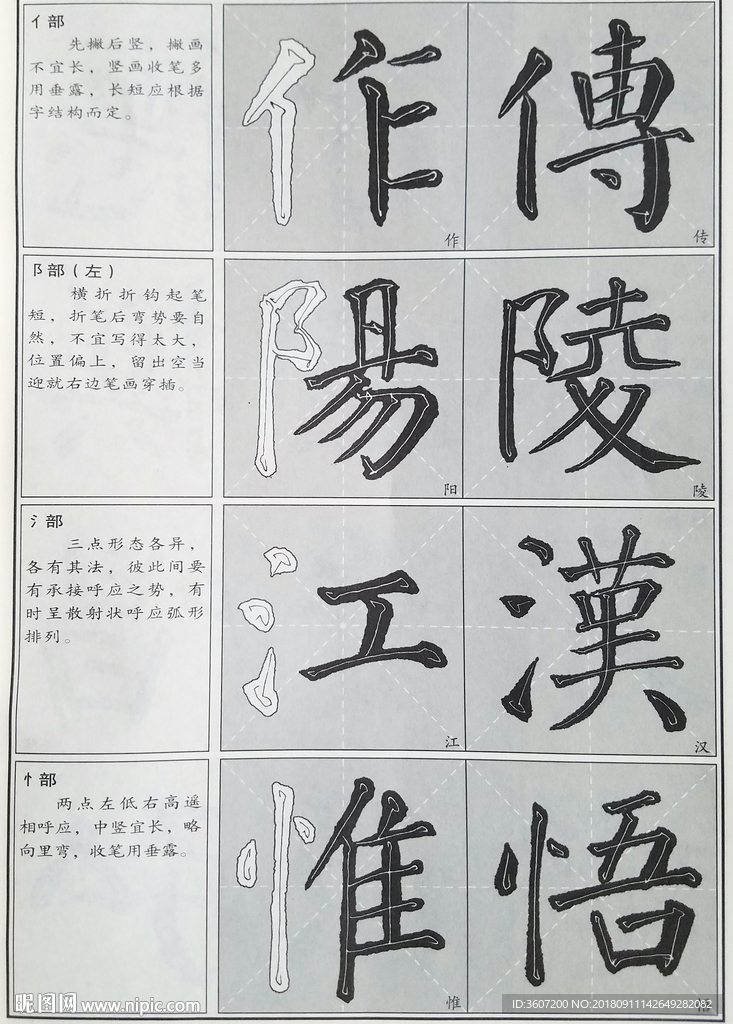 亻部
先撇后竖，撇画
不宜长，竖画收笔多
用垂露，长短应根据
字结构而定。
作 傳
作 传
阝部（左）
横折折钩起笔
短，折笔后弯势要自
然，不宜写得太大，
位置偏上，留出空当
迎就右边笔画穿插。
陽 陵
阳 陵
氵部
三点形态各异，
各有其法，彼此间要
有承接呼应之势，有
时呈散射状呼应弧形
排列。
江 漢
江 汉
忄部
两点左低右高遥
相呼应，中竖宜长，略
向里弯，收笔用垂露。
惟 悟
惟
昵图网 www.nipic.com
ID:3607200 NO:20180911142649282082